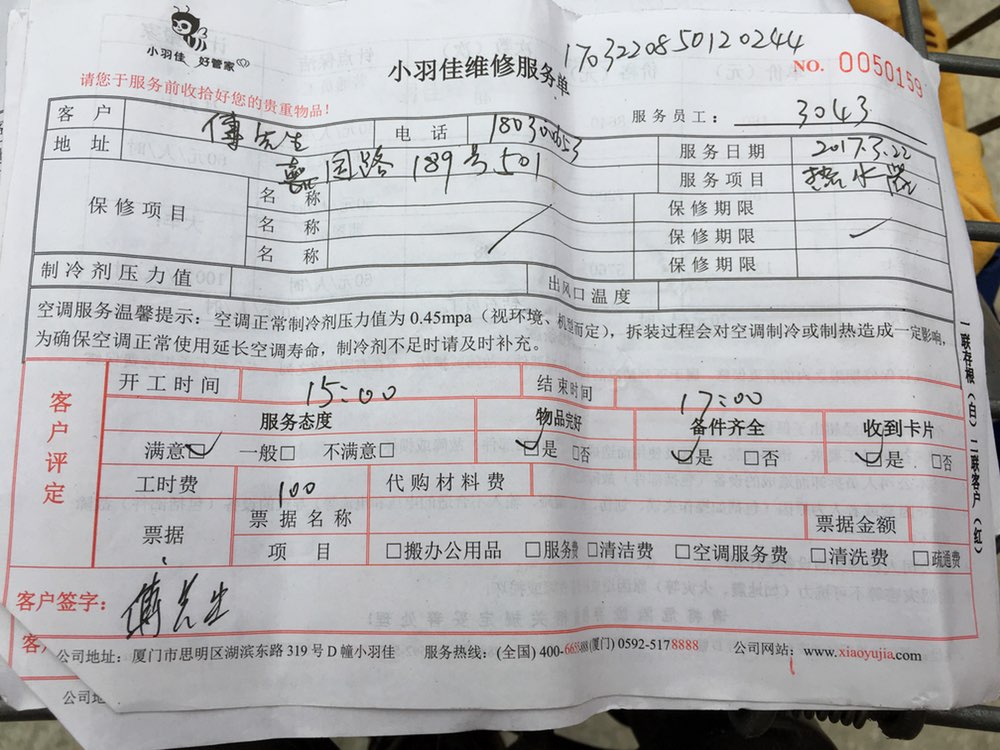 小羽佳 好管家
小羽佳维修服务单
1703220850120244
NO. 0050159
请您于服务前收拾好您的贵重物品！
服务员工： 3043
客户 傅先生 电话
地址 园路 189号501
服务日期 2017.3.22
服务项目 热水器
保修项目
名称 保修期限
名称 保修期限
名称 保修期限
制冷剂压力值 出风口温度
空调服务温馨提示：空调正常制冷剂压力值为 0.45mpa（视环境、机型而定），拆装过程会对空调制冷或制热造成一定影响，
为确保空调正常使用延长空调寿命，制冷剂不足时请及时补充。
客户评定
开工时间 15:00 结束时间 17:00
服务态度 物品完好 备件齐全 收到卡片
满意☑ 一般□ 不满意□ ☑是 □否 ☑是 □否 ☑是 □否
工时费 100 代购材料费
票据 票据名称 票据金额
项目 □搬办公用品 □服务费 □清洁费 □空调服务费 □清洗费 □疏通费
客户签字： 傅先生
客
公司地址：厦门市思明区湖滨东路 319 号 D 幢小羽佳 服务热线：(全国) 400- (厦门) 0592-5178888 公司网站：www.xiaoyujia.com
公司地
一联存根（白）二联客户（红）